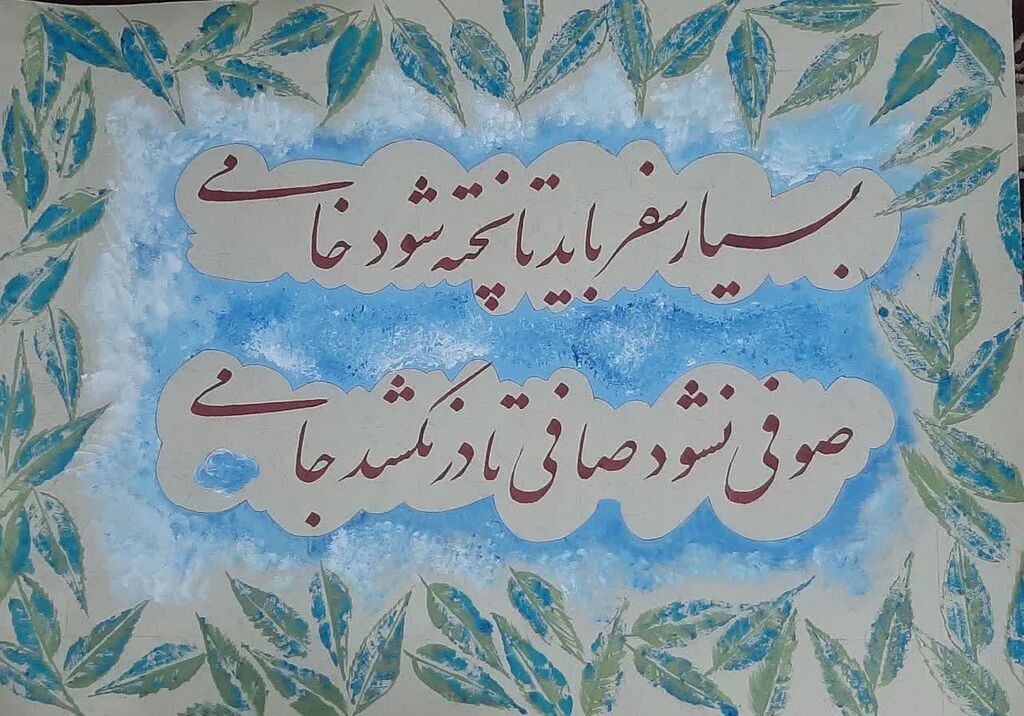 بسیار سفر باید تا پخته شود خامی
صوفی نشود صافی تا در نکشد جامی